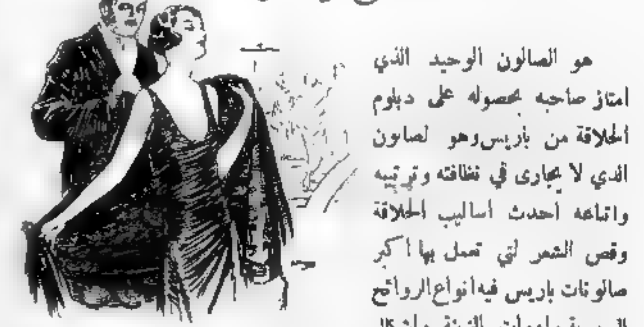 هو الصالون الوحيد الذي
امتاز صاحبه بحصوله على دبلوم
الحلاقة من باريس وهو لصالون
الذي لا يجارى في نظافته وترتيبه
واتباعه احدث أساليب الحلاقة
وقص الشعر لتي تعمل بها اكبر
صالونات باريس فيه انواع الروائح